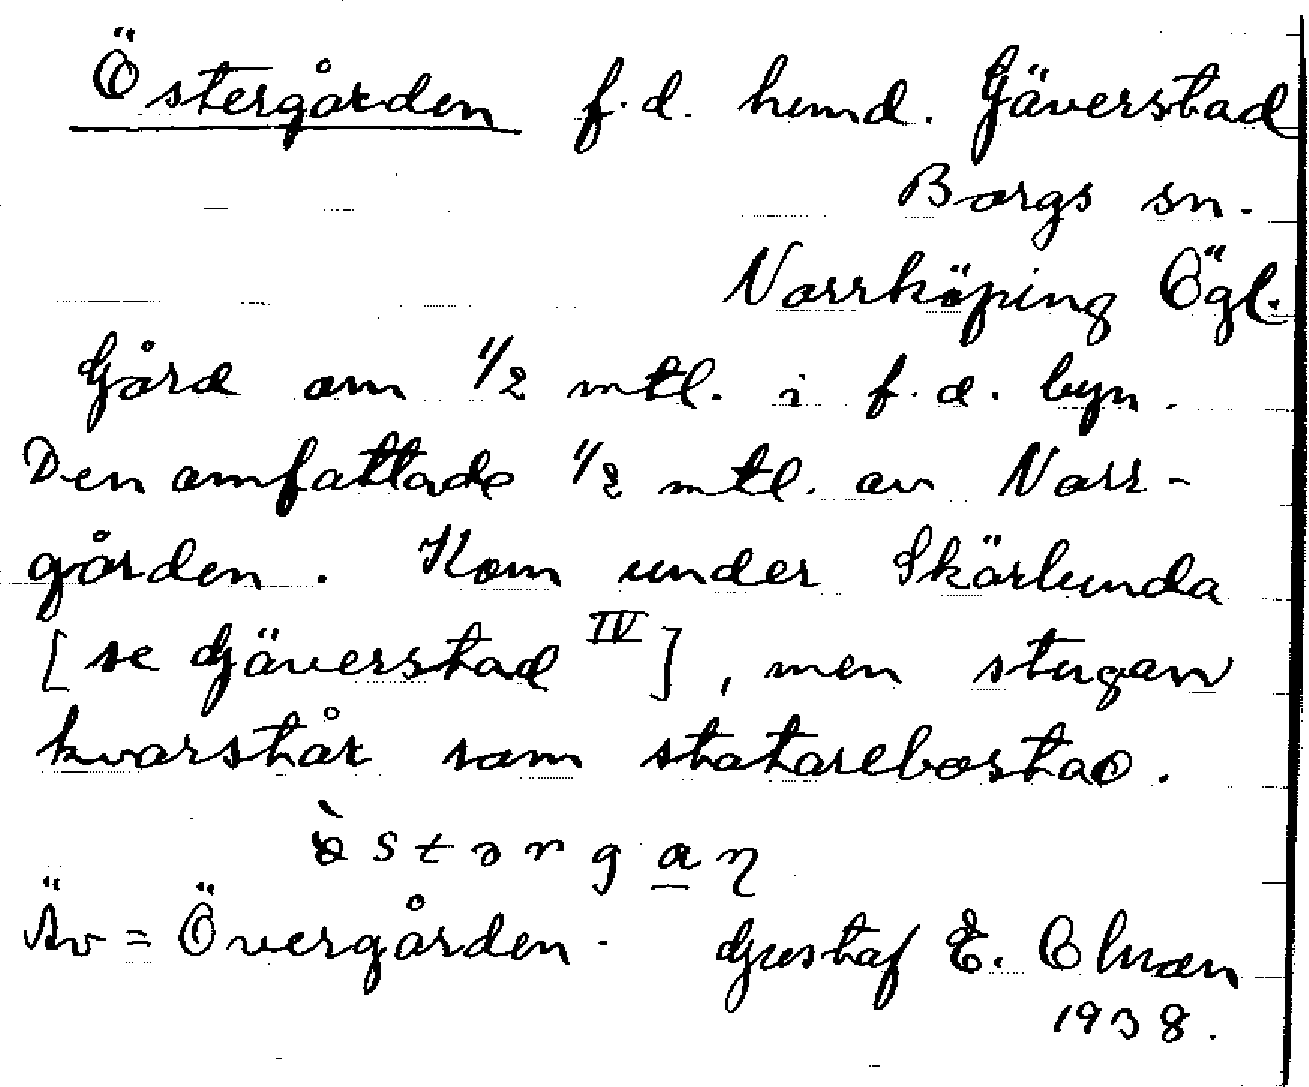 Östergården f.d. hemd. Gäverstad
Borgs sn.
Norrköping Ögl.
Gård om 1/2 mtl. i f.d. byn.
Den omfattade 1/2 mtl. av Norr-
gården. Kom under Skärlunda
[se Gäverstad IV], men stugan
kvarstår som statarebostad.
Äv = Övergården. Gustaf E.
1938.